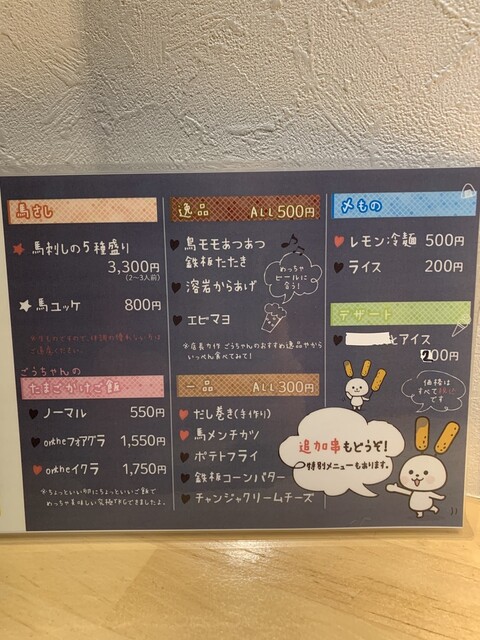 馬さし
馬刺しの5種盛り
3,300円
(2~3人前)
馬ユッケ 800円
ごうちゃんの
たまごかけご飯
ノーマル 550円
ontheフォアグラ 1,550円
ontheイクラ 1,750円
※ちょっといい卵にちょっといいご飯で
めっちゃ美味しい究極TKGできましたよ。
逸品 ALL500円
鳥モモあつあつ
鉄板たたき
めっちゃ
ビールに
合う!
溶岩からあげ
エビマヨ
※店長力作ごうちゃんのおすすめ逸品やから
いっぺん食べてみて!
一品 ALL300円
だし巻き(手作り)
馬メンチカツ
ポテトフライ
鉄板コーンバター
チャンジャクリームチーズ
〆もの
レモン冷麺 500円
ライス 200円
デザート
とアイス
200円
価格は
すべて税込
です
追加串もどうぞ!
特別メニューもあります。